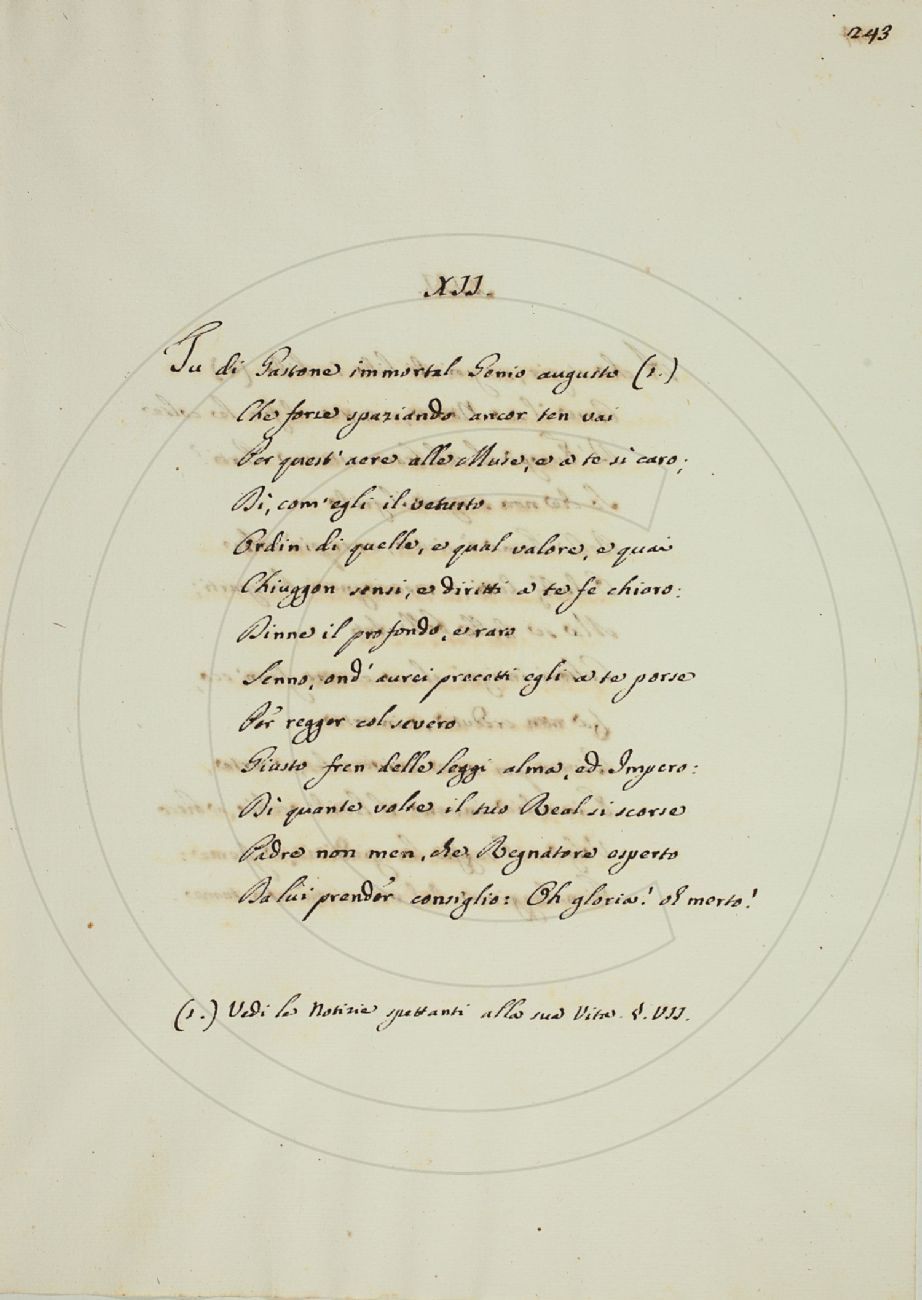 243
XII.
Tu di Gastone immortal Genio augusto (1.)
Che forse spaziando ancor ten vai
Per quest' aere alle Muse, e a te sì caro;
Dì, com' egli il vetusto
Ordin di quelle, e qual valore, e quai
Chiuggon sensi, e diritti a te fe chiaro:
Dinne il profondo, e raro
Senno, ond' aurei precetti egli a te porse
Per regger col severo
Giusto fren delle leggi alma, ed Impero:
Dì quante volte il tuo Real si scorse
Padre non men, che Regnatore esperto
Da lui prender consiglio: Oh gloria! oh merto!
(1.) Vedi le Notizie spettanti alla sua Vita. §. VII.